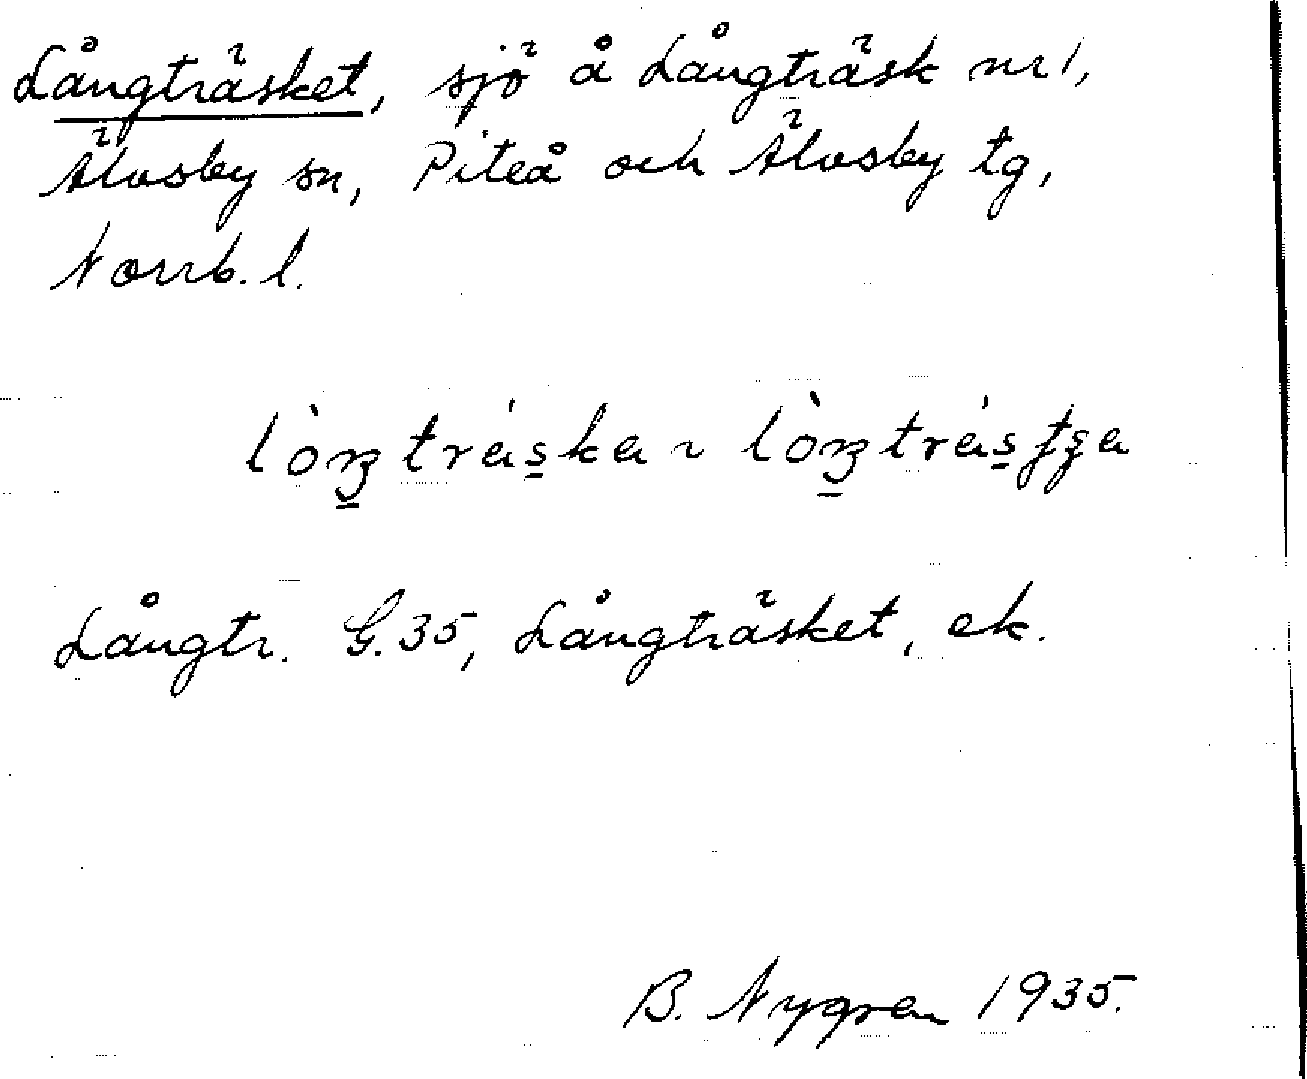 Långträsket, sjö å Långträsk nr 1,
Älvsby sn, Piteå och Älvsby tg,
Norrb. l.
Långtr. G.35, Långträsket, ek.
B. Nygren 1935.